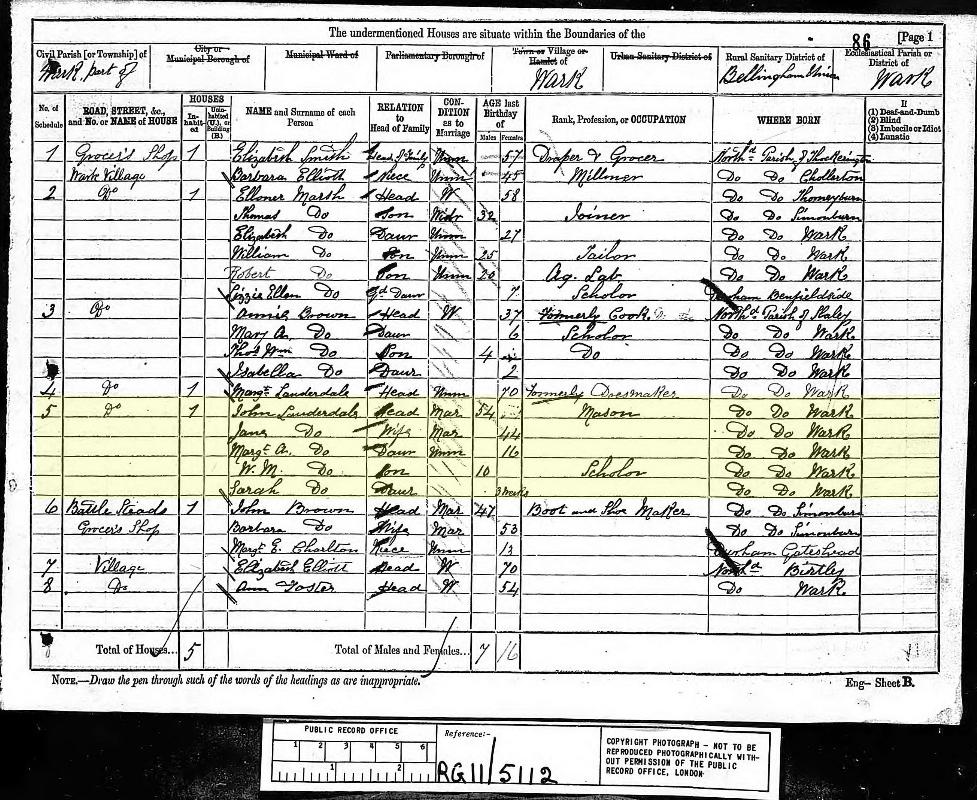 The undermentioned Houses are situate within the Boundaries of the
86 [Page 1
Civil Parish [or Township] of City or Municipal Borough of Municipal Ward of Parliamentary Borough of Town or Village or Hamlet of Urban Sanitary District of Rural Sanitary District of Ecclesiastical Parish or District of
Wark, part of WARK Bellingham Union WARK
No. of Schedule ROAD, STREET, &c., and No. or NAME of HOUSE HOUSES Inhabited Uninhabited (U.), or Building (B.) NAME and Surname of each Person RELATION to Head of Family CONDITION as to Marriage AGE last Birthday of Males Females Rank, Profession, or OCCUPATION WHERE BORN If (1) Deaf-and-Dumb (2) Blind (3) Imbecile or Idiot (4) Lunatic
1 Grocer's Shop 1 Elizabeth Smith Head of Family Unm 57 Draper & Grocer North'd Parish of Thockerington
Wark Village Barbara Elliott Niece Unm 45 Milliner Do Do Chollerton
2 Do 1 Ellonor Marsh Head W 58 Do Do Thorneyburn
Thomas Do Son Widr 32 Joiner Do Do Simonburn
Elizabeth Do Daur Unm 27 Do Do WARK
William Do Son Unm 25 Tailor Do Do WARK
Robert Do Son Unm 20 Ag. Lab Do Do WARK
Lizzie Ellen Do Gd Daur 7 Scholar Durham Benfieldside
3 Do Annie Brown Head W 37 Formerly Cook North'd Parish of Slaley
Mary A. Do Daur 6 Scholar Do Do Wark
Thos Wm Do Son 4 Do Do Do WARK
Isabella Do Daur 2 Do Do WARK
4 Do 1 Margt Lauderdale Head Unm 70 Formerly Dressmaker Do Do WARK
5 Do 1 John Lauderdale Head Mar 54 Mason Do Do WARK
Jane Do Wife Mar 44 Do Do WARK
Margt A. Do Daur Unm 16 Do Do WARK
W. M. Do Son 10 Scholar Do Do WARK
Sarah Do Daur 3 Weeks Do Do WARK
6 Battle Steads 1 John Brown Head Mar 47 Boot and Shoe Maker Do Do Simonburn
Grocer's Shop Barbara Do Wife Mar 53 Do Do Simonburn
Margt E. Charlton Niece Unm 13 Durham Gateshead
7 Village Elizabeth Elliott Head W 70 North'd Birtley
8 Do Ann Foster Head W 54 Do WARK
Total of Houses... 5 Total of Males and Females... 7 16
NOTE.—Draw the pen through such of the words of the headings as are inappropriate.
Eng—Sheet B.
PUBLIC RECORD OFFICE
1 2 3 4 5 6
1 2
Reference:-
RG11/5112
COPYRIGHT PHOTOGRAPH - NOT TO BE REPRODUCED PHOTOGRAPHICALLY WITHOUT PERMISSION OF THE PUBLIC RECORD OFFICE, LONDON